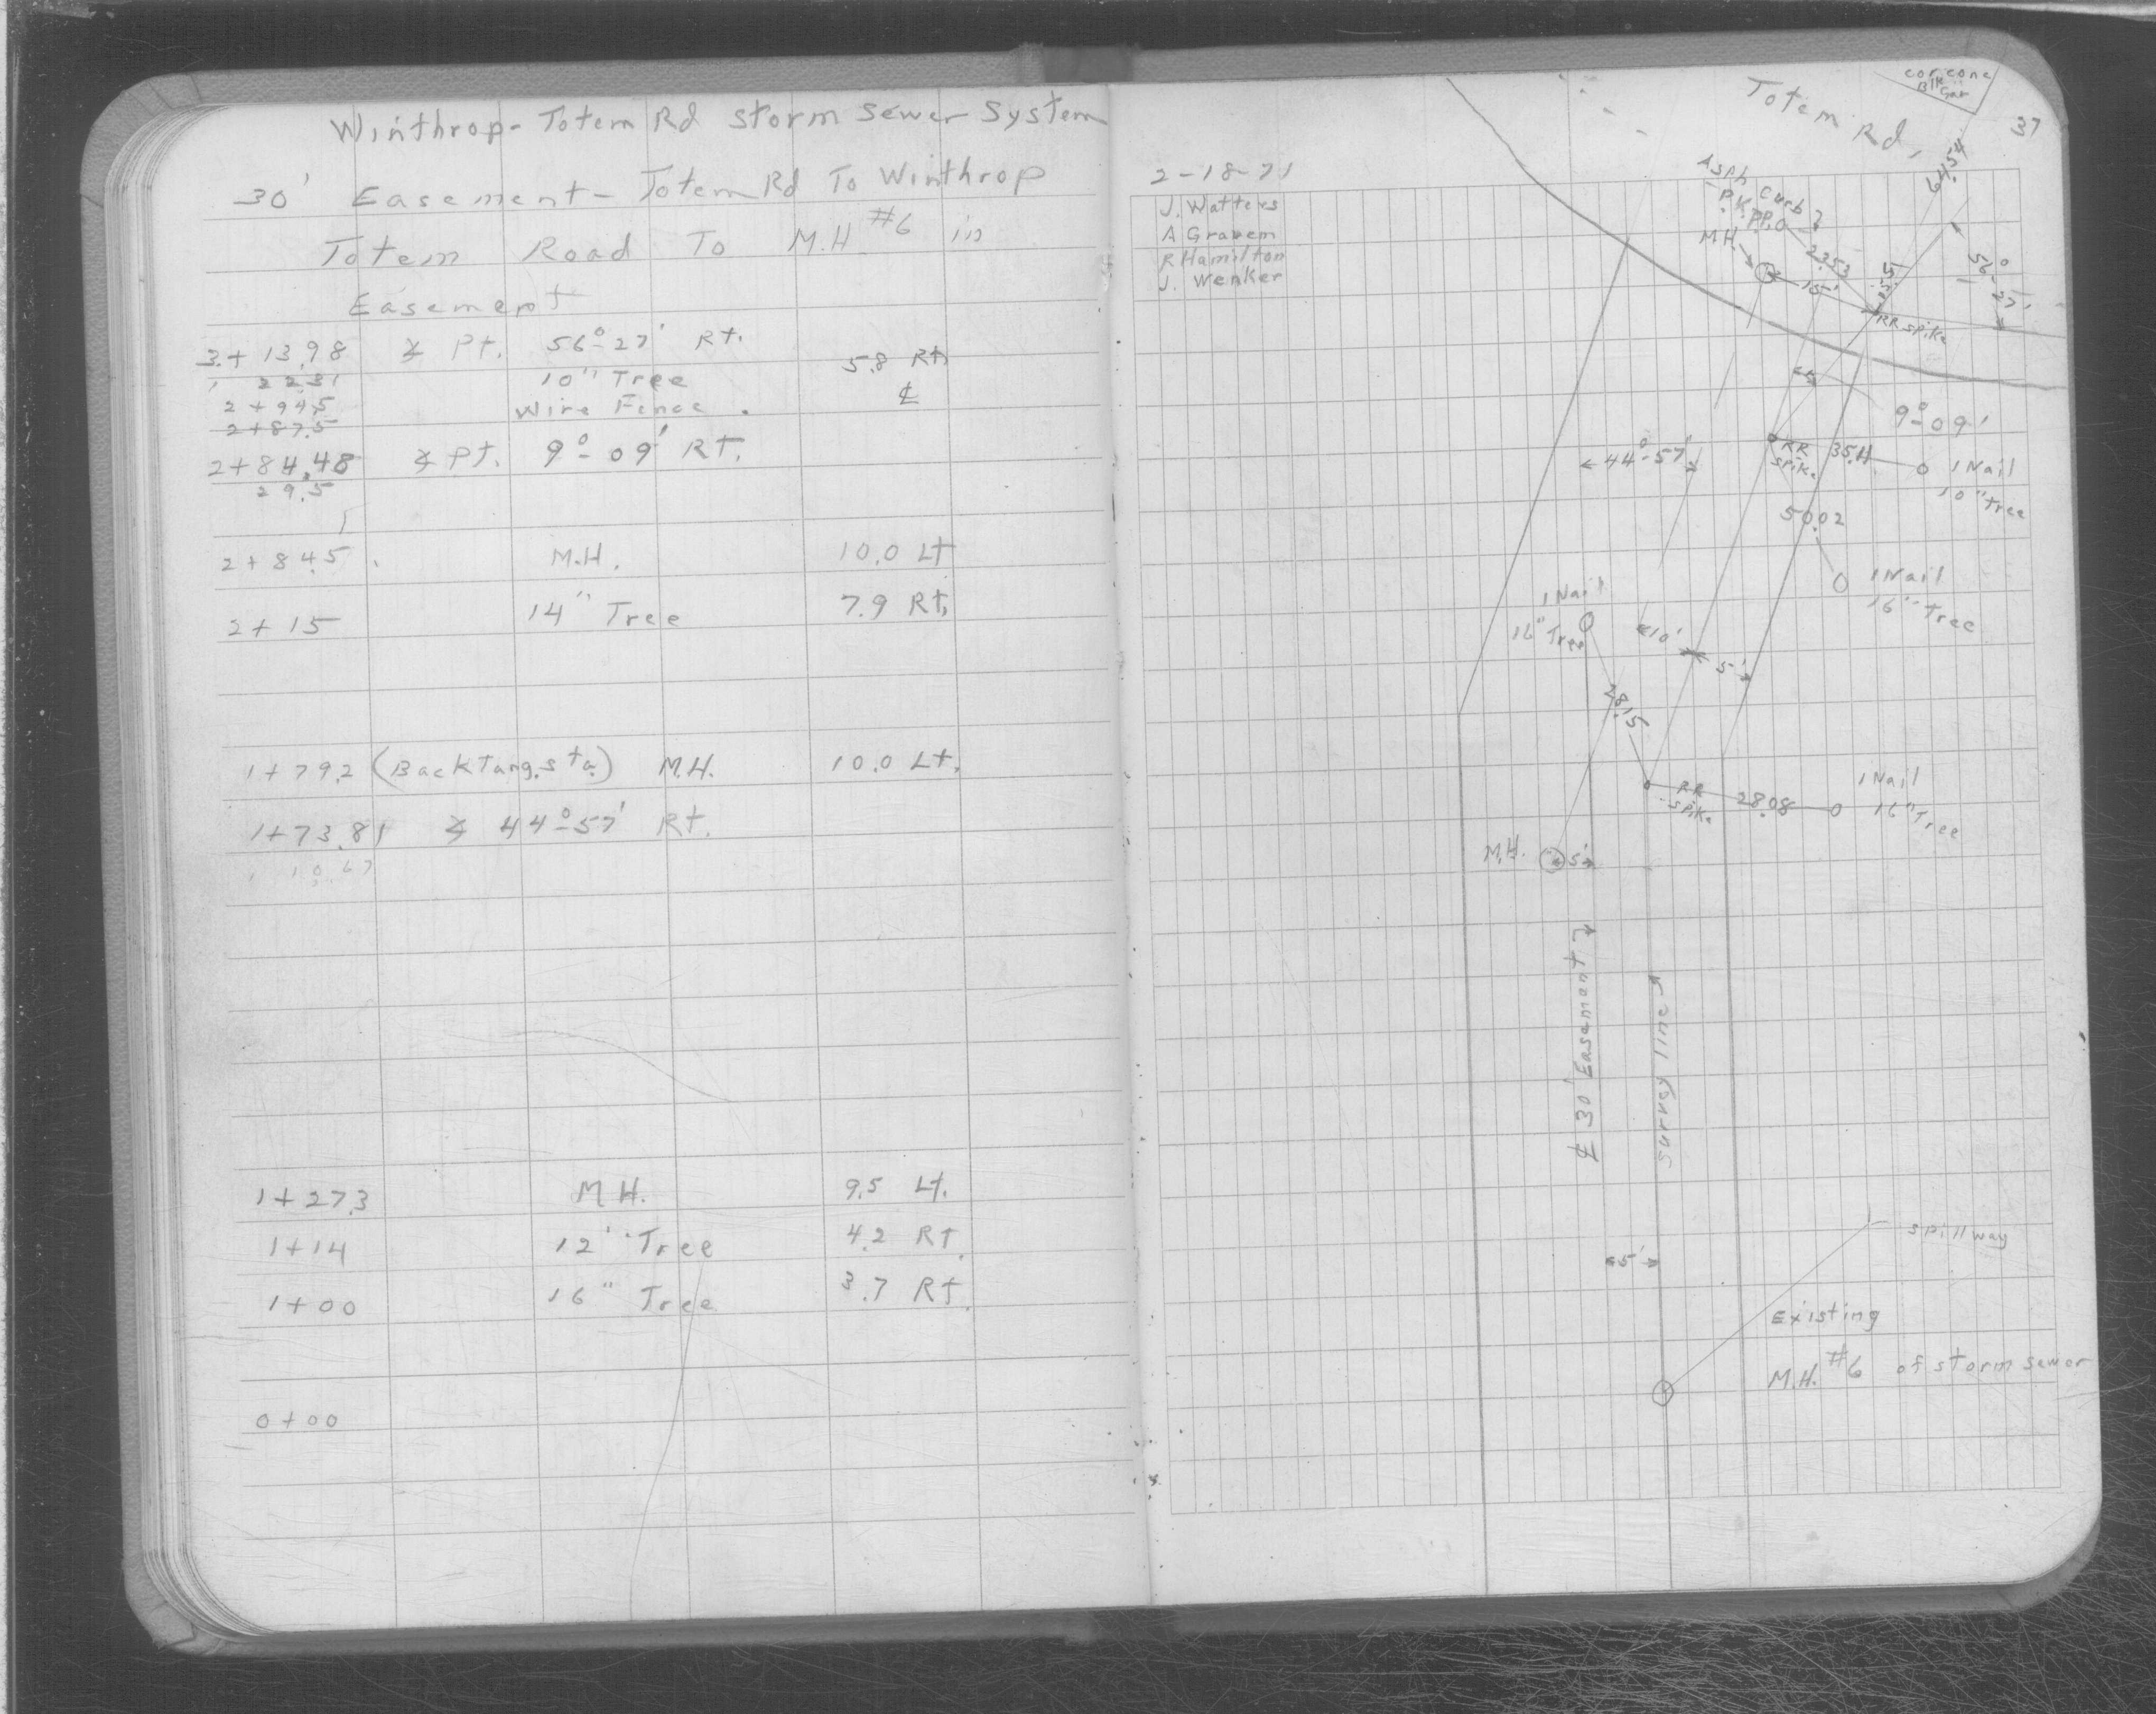 Winthrop - Totem Rd Storm Sewer System
30' Easement - Totem Rd To Winthrop
Totem Road To M.H #6 in
Easement
3+13.98 ∡ Pt. 56°-27' Rt.
2231
2+94.5 10" Tree 5.8 Rt.
2+87.5 Wire Fence ℄
2+84.48 ∡ Pt. 9°-09' Rt.
29.5
2+84.5 M.H. 10.0 Lt
2+15 14" Tree 7.9 Rt.
1+79.2 (Back Tang. sta.) M.H. 10.0 Lt.
1+73.81 ∡ 44°-57' Rt.
10.67
1+27.3 M H. 9.5 Lt.
1+14 12" Tree 4.2 Rt.
1+00 16" Tree 3.7 Rt.
0+00
37
cor. conc
Blk Gar
Totem Rd.
2-18-71
J. Watters
A Gravem
R Hamilton
J. Wenker
64.54
Asph Curb
P.K. PP.
M.H.
23.53
15'
56°-27'
RR spike
5'
9°-09'
44°-57'
RR spike
35.11
1 Nail
10" Tree
50.02
1 Nail
16" Tree
1 Nail
16" Tree
10'
5'
28.15
RR spike
28.08
1 Nail
16" Tree
M.H. 5'
℄ 30' Easement
survey line
spillway
5'
Existing
M.H. #6 of storm sewer